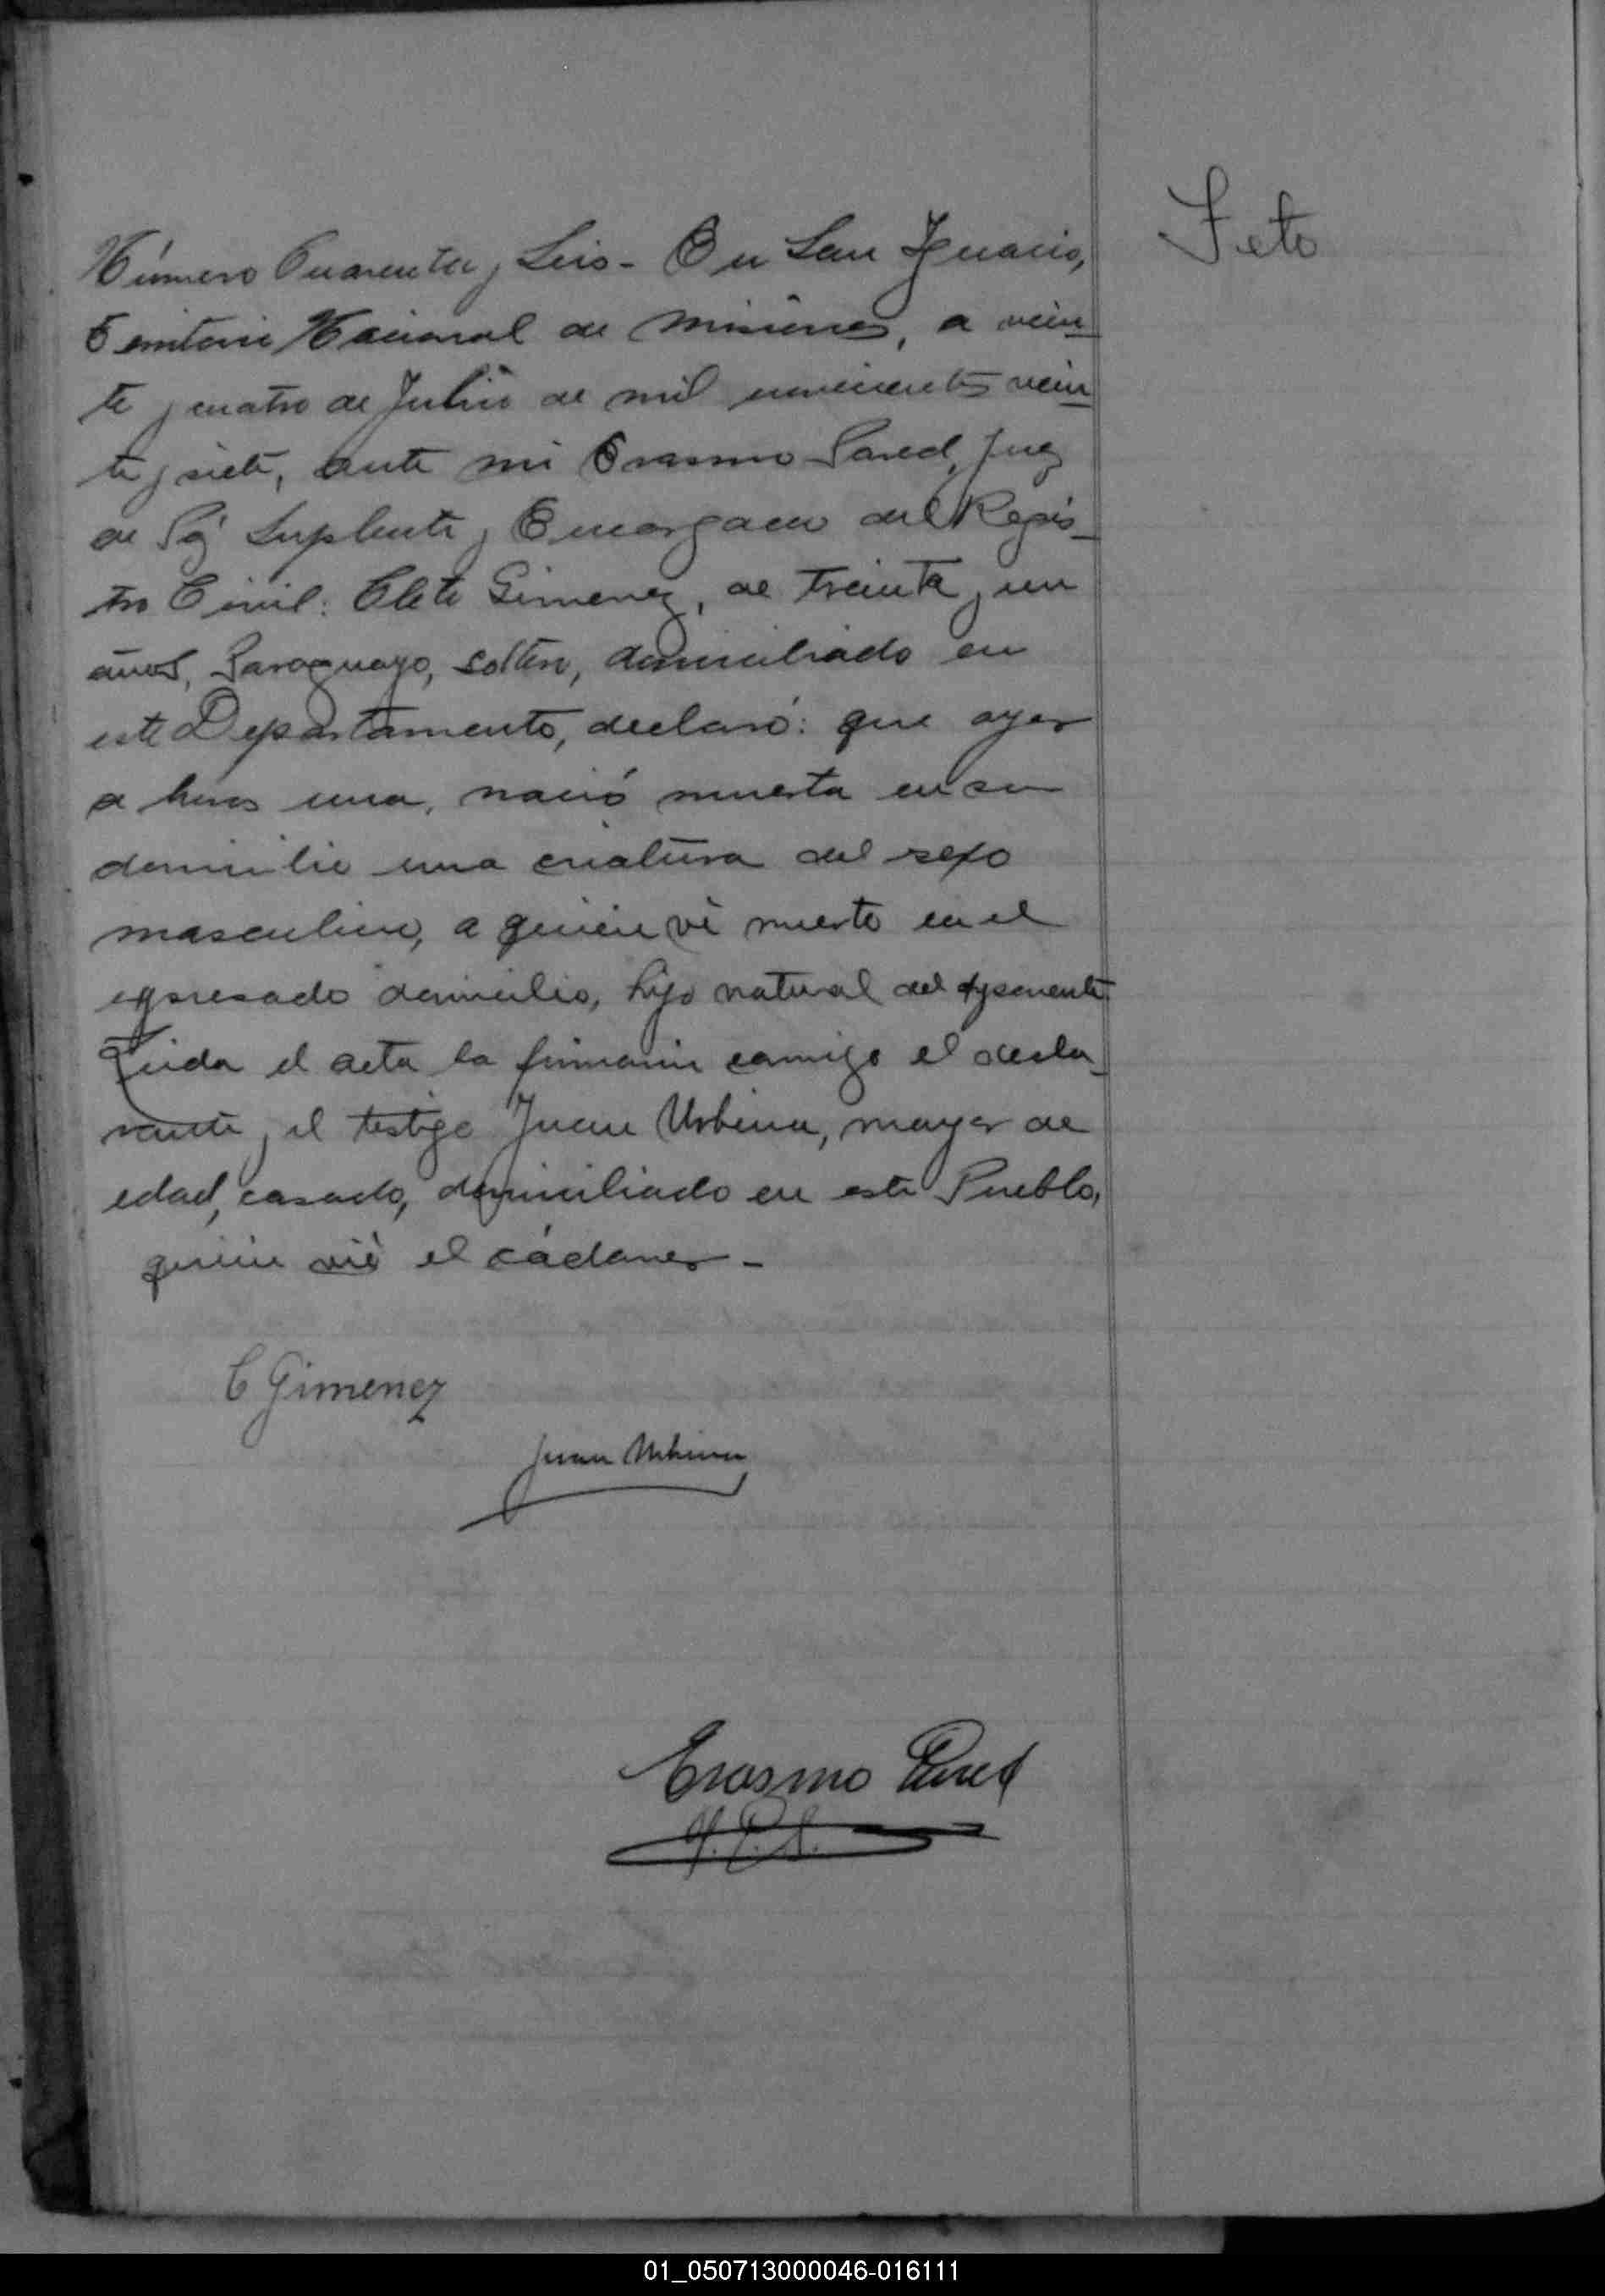 Feto
Número Cuarenta y Seis - En San Ignacio,
Territorio Nacional de Misiones, a vein-
te y cuatro de Julio de mil novecientos vein-
te y siete, ante mi Erasmo Pared, Juez
de Paz Suplente y Encargado del Regis-
tro Civil: Cleto Gimenez, de treinta y un
años, Paraguayo, soltero, domiciliado en
este Departamento, declaró: que ayer
a horas una, nació muerta en su
domicilio una criatura del sexo
masculino, a quien vi muerto en el
expresado domicilio, hijo natural del exponente.
Leida el acta la firmaron conmigo el decla-
rante y el testigo Juan Urbina, mayor de
edad, casado, domiciliado en este Pueblo,
quien vió el cádaver -
C Gimenez
Juan Urbina
Erasmo Pared
J.P.S.
01_050713000046-016111